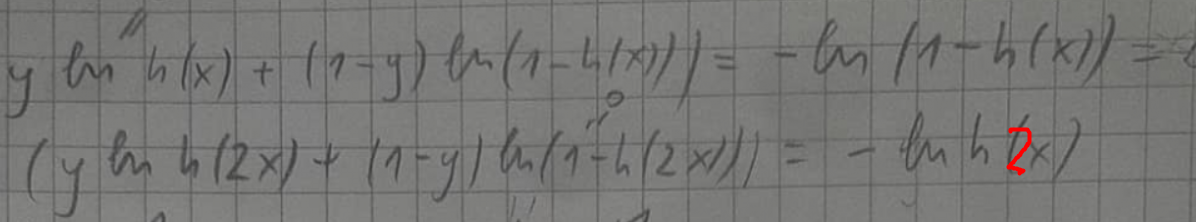 y ln h(x) + (1-y) ln(1-h(x))) = - ln (1-h(x)) =
(y ln h(2x) + (1-y) ln(1-h(2x))) = - ln h(2x)